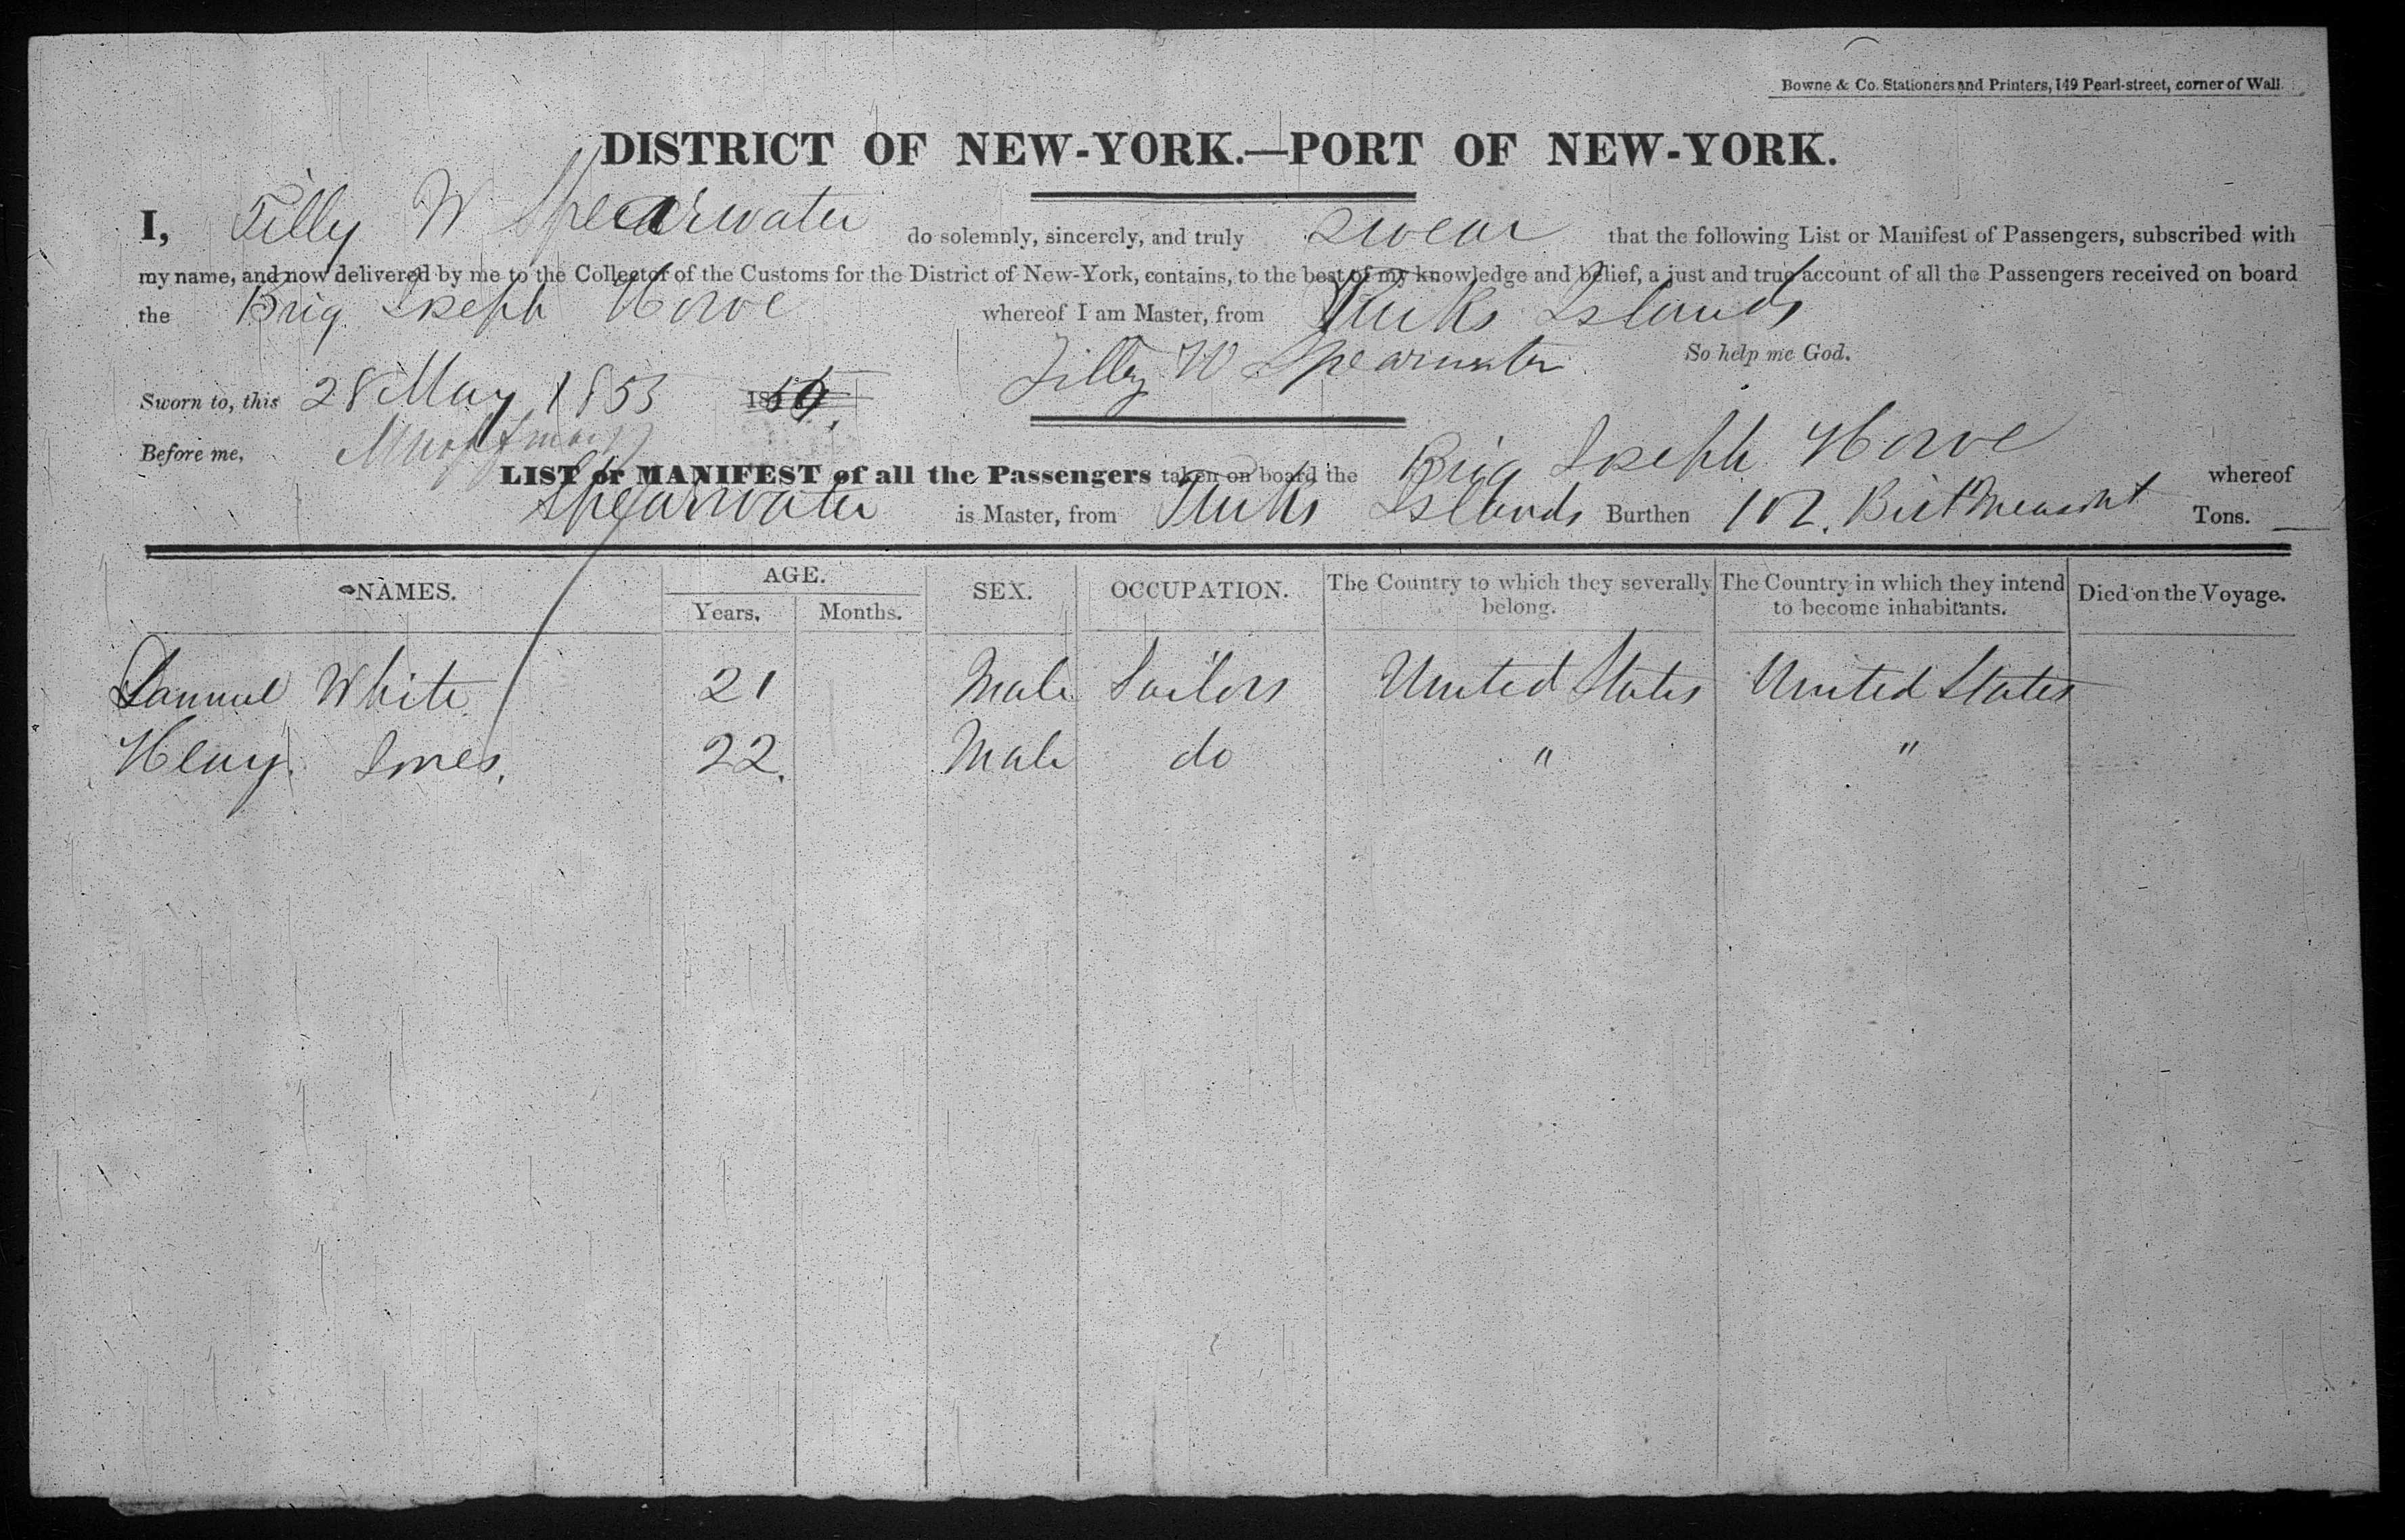 Bowne & Co. Stationers and Printers, 149 Pearl-street, corner of Wall.
DISTRICT OF NEW-YORK.—PORT OF NEW-YORK.
I, Tilly W Spearwater do solemnly, sincerely, and truly swear that the following List or Manifest of Passengers, subscribed with
my name, and now delivered by me to the Collector of the Customs for the District of New-York, contains, to the best of my knowledge and belief, a just and true account of all the Passengers received on board
the Brig Joseph Howe whereof I am Master, from Turks Islands
Tilley W Spearwater So help me God.
Sworn to, this 28 May 1853 185
Before me,
LIST or MANIFEST of all the Passengers taken on board the Brig Joseph Howe whereof
Spearwater is Master, from Turks Islands Burthen 102. Brit Measmt Tons.
NAMES. AGE. SEX. OCCUPATION. The Country to which they severally belong. The Country in which they intend to become inhabitants. Died on the Voyage.
Years. Months.
Samuel White 21 Male Sailors United States United States
Henry Jones. 22. Male do " "